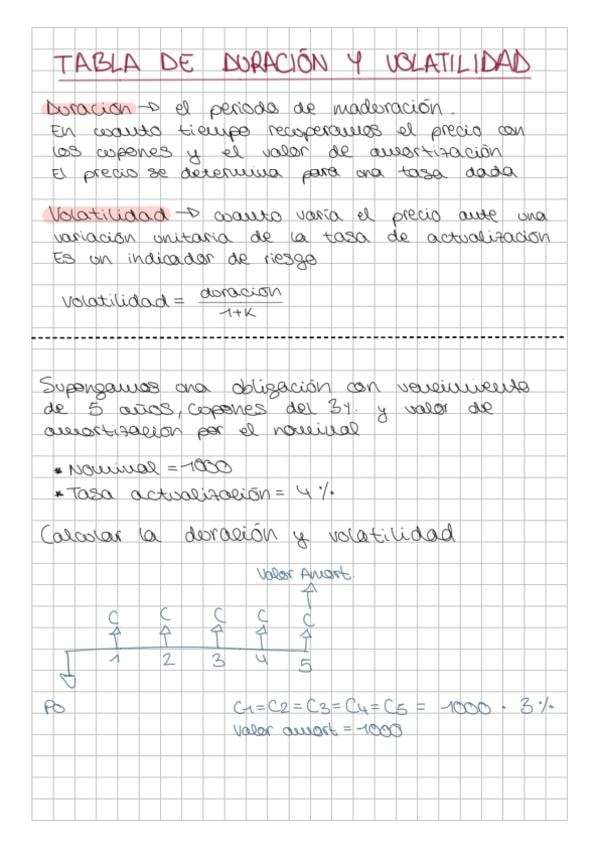 TABLA DE DURACIÓN Y VOLATILIDAD
Duración → el periodo de maduración.
En cuanto tiempo recuperamos el precio con
los cupones y el valor de amortización
El precio se determina para una tasa dada
Volatilidad → cuanto varía el precio ante una
variación unitaria de la tasa de actualización
Es un indicador de riesgo
volatilidad = duración / 1+K
Supongamos una obligación con vencimiento
de 5 años, cupones del 3%. y valor de
amortización por el nominal
* Nominal = 1000
* Tasa actualización = 4%.
Calcular la duración y volatilidad
Valor Amort.
C C C C C
1 2 3 4 5
P0
C1=C2=C3=C4=C5 = 1000 · 3%
Valor amort = 1000